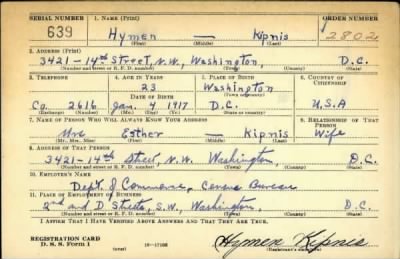 SERIAL NUMBER 1. NAME (Print) ORDER NUMBER
639 Hymen — Kipnis 2802
(First) (Middle) (Last)
2. ADDRESS (Print)
3421-14th Street, N.W., Washington, D.C.
(Number and street or R. F. D. number) (Town) (County) (State)
3. TELEPHONE 4. AGE IN YEARS 5. PLACE OF BIRTH 6. COUNTRY OF CITIZENSHIP
23 Washington
DATE OF BIRTH (Town or county)
Co. 2616 Jan. 4 1917 D.C. U.S.A
(Exchange) (Number) (Mo.) (Day) (Yr.) (State or country)
7. NAME OF PERSON WHO WILL ALWAYS KNOW YOUR ADDRESS 8. RELATIONSHIP OF THAT PERSON
Mrs Esther — Kipnis Wife
(Mr., Mrs., Miss) (First) (Middle) (Last)
9. ADDRESS OF THAT PERSON
3421-14th Street, N.W. Washington, D.C.
(Number and street or R. F. D. number) (Town) (County) (State)
10. EMPLOYER'S NAME
Dept. of Commerce, Census Bureau
11. PLACE OF EMPLOYMENT OR BUSINESS
2nd and D Streets, S.W., Washington D.C.
(Number and street or R. F. D. number) (Town) (County) (State)
I AFFIRM THAT I HAVE VERIFIED ABOVE ANSWERS AND THAT THEY ARE TRUE.
REGISTRATION CARD
D. S. S. Form 1 (over) Hymen Kipnis
(Registrant's signature)